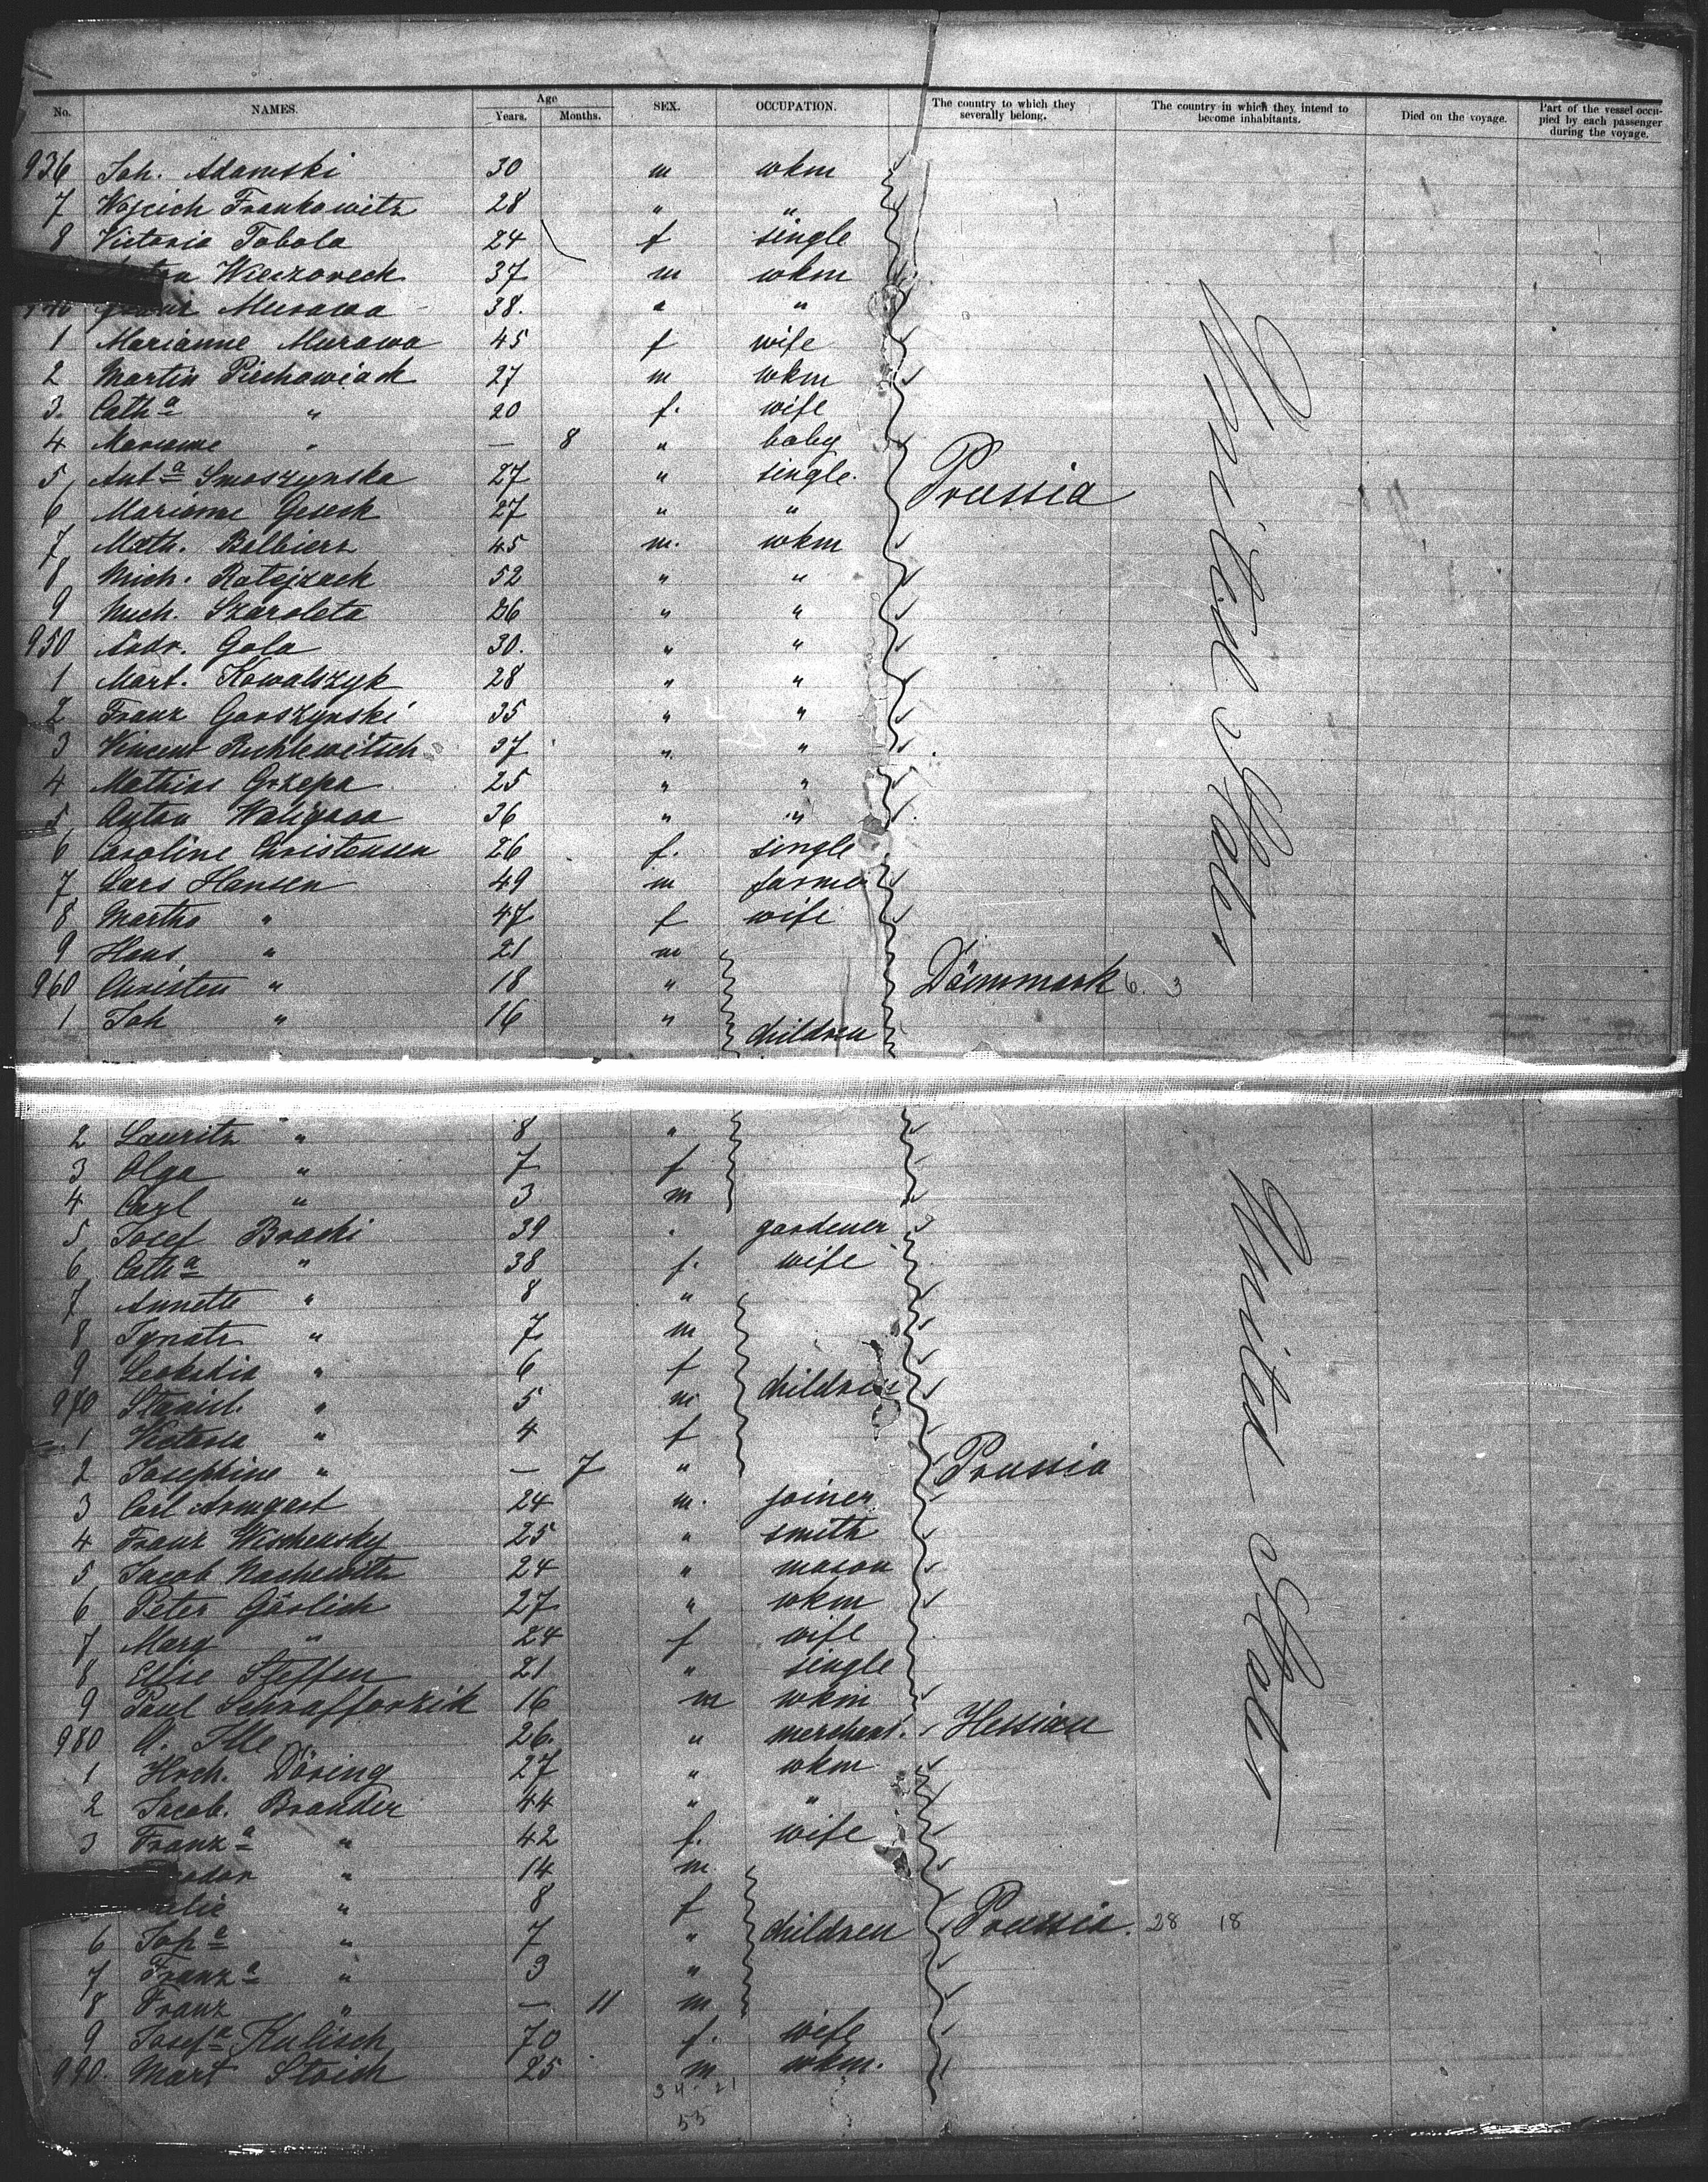 No. NAMES. Age Years. Months. SEX. OCCUPATION. The country to which they severally belong. The country in which they intend to become inhabitants. Died on the voyage. Part of the vessel occupied by each passenger during the voyage.
936 Joh. Adamski 30 m wkm
7 Wojcich Frankowitz 28 " "
8 Victoria Tobola 24 f single
Wieczoreck 37 m wkm
Murawa 38. " "
1 Marianne Murawa 45 f wife
2 Martin Piechowiack 27 m wkm
3. Cath a " 20 f. wife
4 Marianne " — 8 " baby
5 Ant a Smoszynska 27 " single. Prussia
6 Marianne 27 " "
7 Math. Balbierz 45 m. wkm
8 Mich. Ratejzack 52 " "
9 Mich. Szaroleta 26 " "
950 Andr. Gola 30. " "
1 Mart. Kowalszyk 28 " "
2 Franz Gorszynski 35 " "
3 Vincent 37 " "
4 Mathias Grzepa 25 " "
5 Anton Waligora 36 " "
6 Caroline Christensen 26 f. single
7 Lars Hansen 49 m farmer
8 Martha " 47 f wife
9 Hans " 21 m
960 Christen " 18 " Dännmark 6. 3
1 Joh " 16 " children
United States
2 Lauritz " 8 "
3 Olga " 7 f
4 Carl " 3 m
5 Josef Bracki 39 " gardener
6 Cath a " 38 f. wife
7 Annette " 8 "
8 Ignatz " 7 m
9 Leokadia " 6 f
970 Stanisl. " 5 m children
1 Victoria " 4 f
2 Josephine " — 7 " Prussia
3 Carl Armgart 24 m. joiner
4 Franz Wischensky 25 " smith
5 Jacob Nashewitz 24 " mason
6 Peter Görlich 27 " wkm
7 Marg " 24 f wife
8 Elise Steffen 21 " single
9 Paul Schrafforzik 16 m wkm
980 A. Ille 26. " merchant. Hessian
1 Hrch. Döring 27 " wkm
2 Jacob. Brander 44 " "
3 Franz a " 42 f. wife
" 14 m
" 8 f
6 Soph a " 7 " children Prussia. 28 18
7 Franz a " 3 "
8 Franz " — 11 m
9 Josef a Kulisch 70 f. wife
990. Mart Stoich 25 m wkm.
34. 21
55
United States